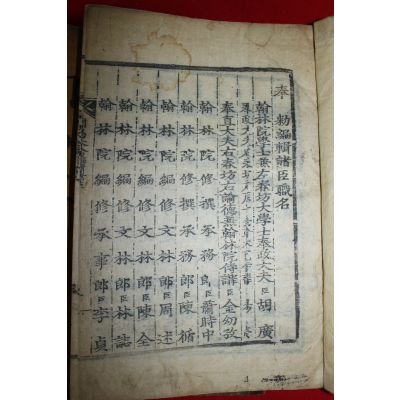 奉
勅編輯諸臣職名
翰林院學士兼左春坊大學士奉政大夫臣胡廣
奉政大夫右春坊右庶子兼翰林院侍講臣楊榮
奉直大夫右春坊右諭德兼翰林院侍講臣金幼孜
翰林院修撰承務郎臣蕭時中
翰林院修撰承務郎臣陳循
翰林院編修文林郎臣周述
翰林院編修文林郎臣陳全
翰林院編修文林郎臣林誌
翰林院編修承事郎臣李貞